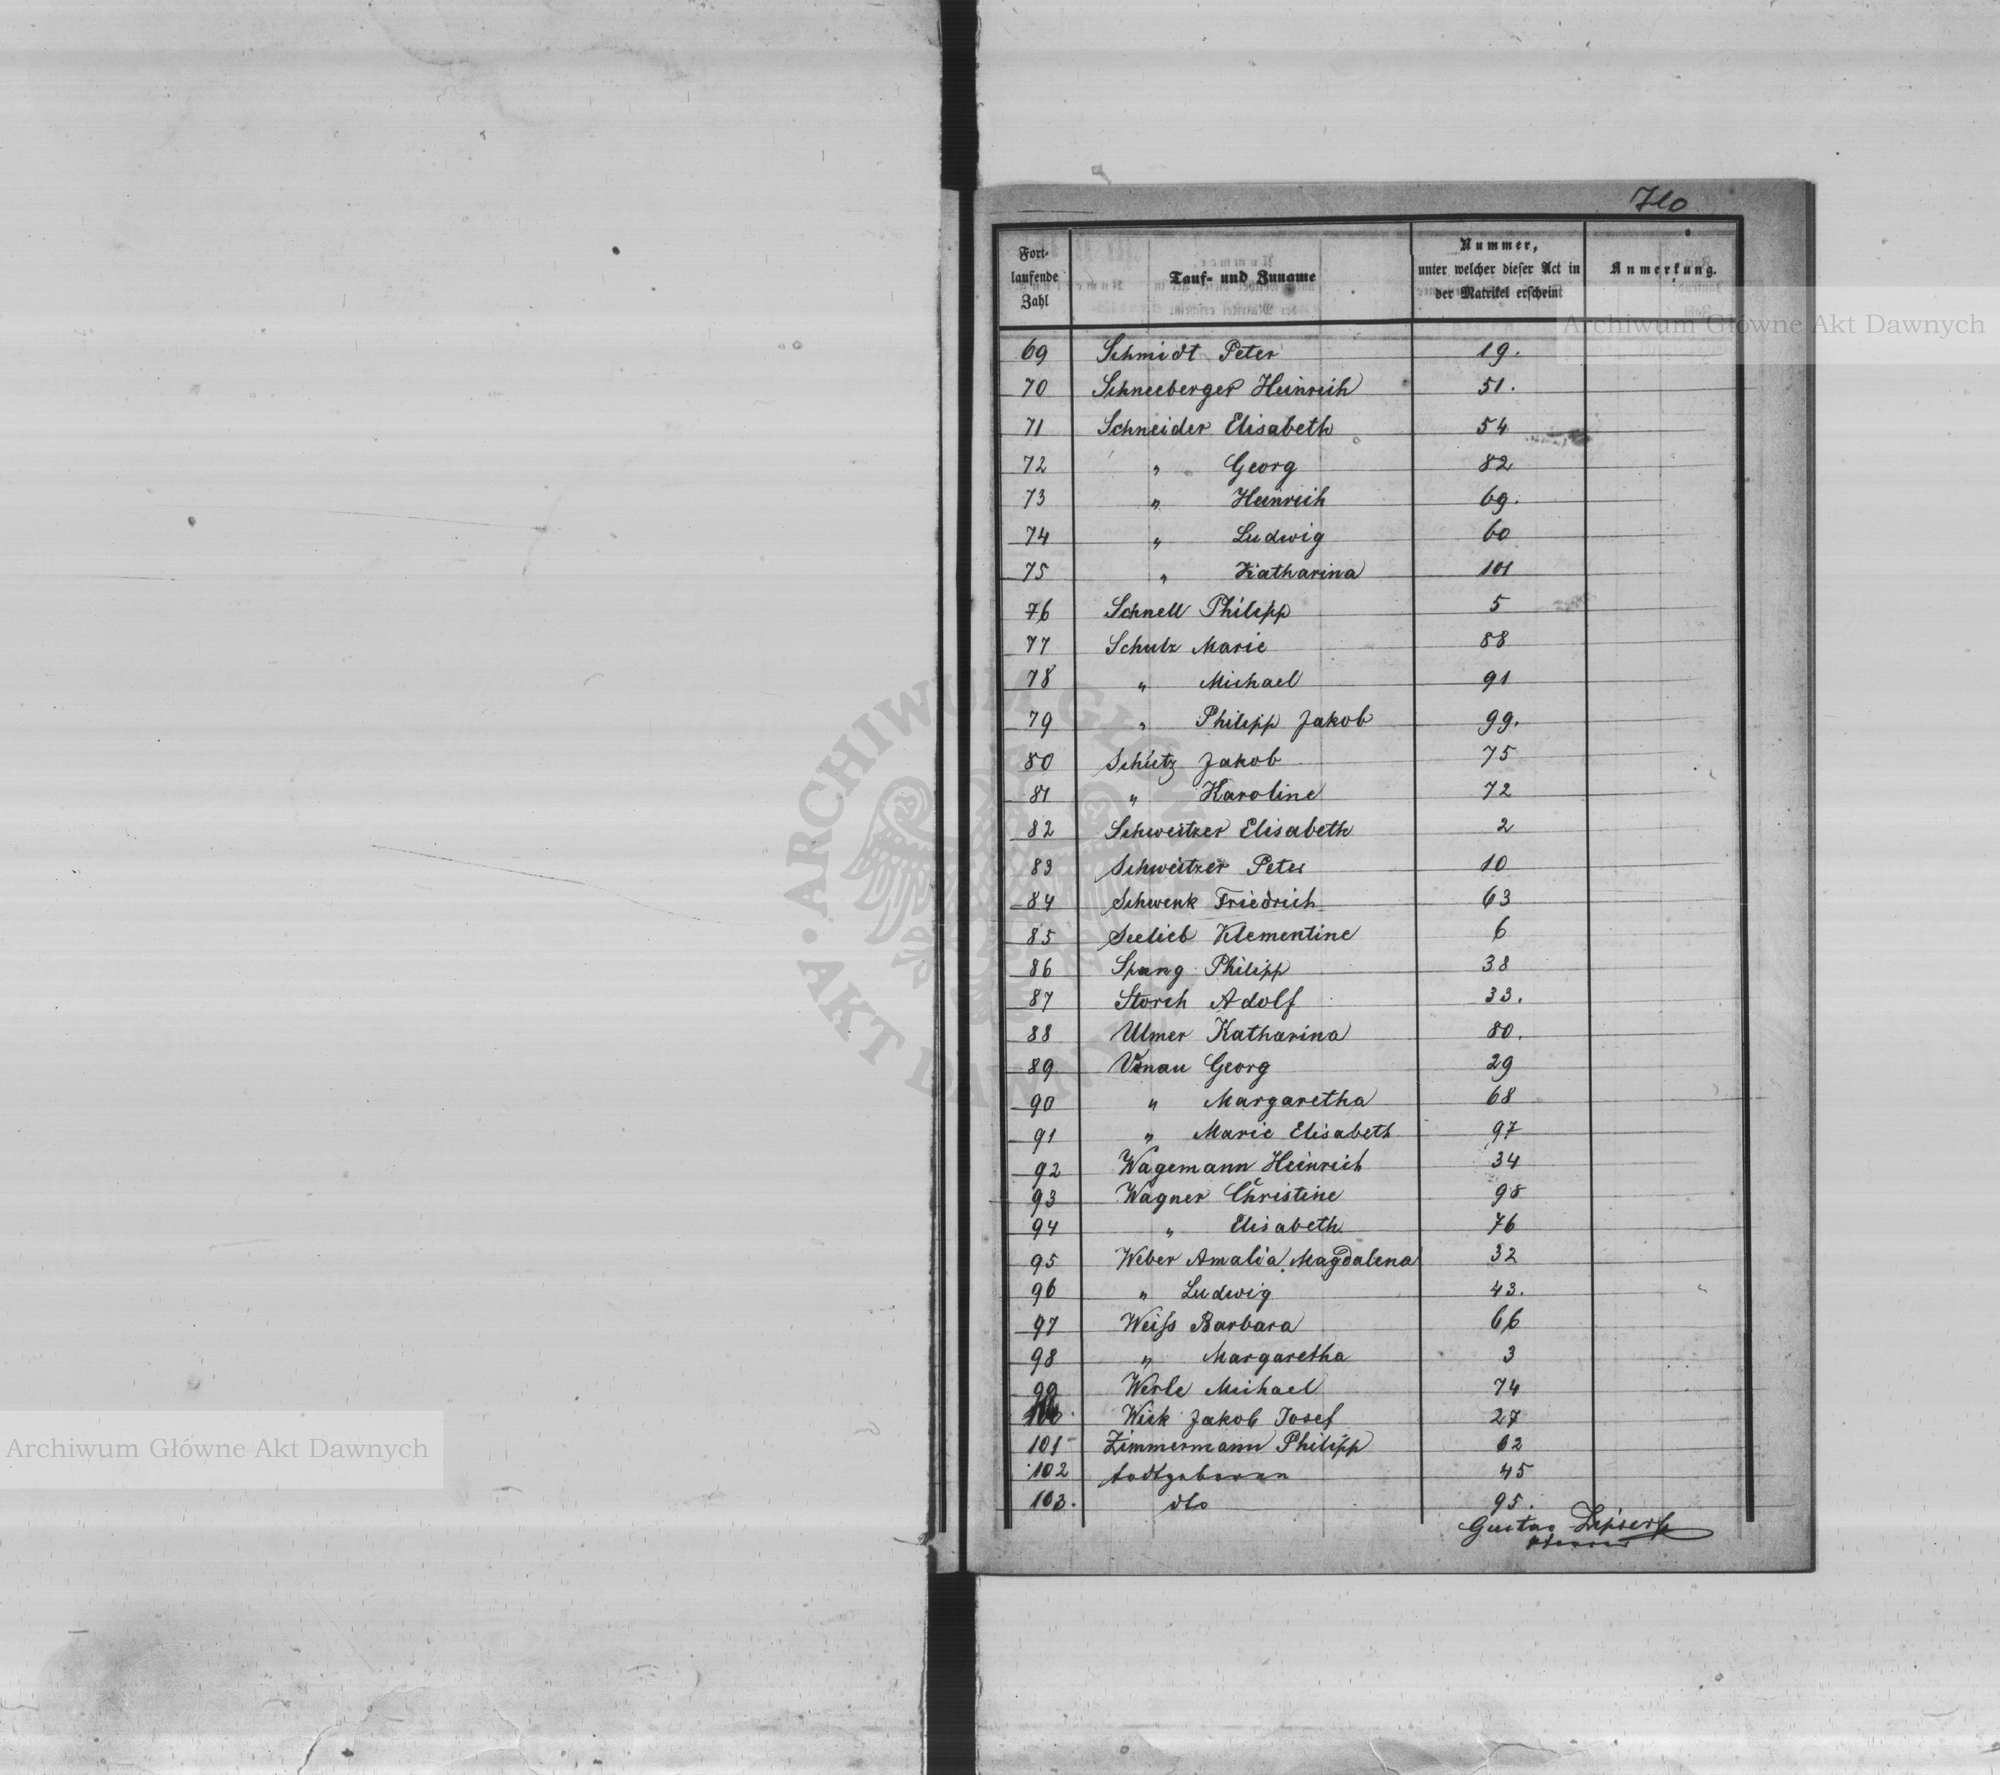 710
Fort-
laufende
Zahl
Tauf- und Zuname
Nummer,
unter welcher dieser Act in
der Matrikel erscheint
Anmerkung.
69 Schmidt Peter 19.
70 Schneeberger Heinrich 51.
71 Schneider Elisabeth 54
72 " Georg 82
73 " Heinrich 69.
74 " Ludwig 60
75 " Katharina 101
76 Schnell Philipp 5
77 Schulz Marie 88
78 " Michael 91
79 " Philipp Jakob 99.
80 Schütz Jakob 75
81 " Karoline 72
82 Schweitzer Elisabeth 2
83 Schweitzer Peter 10
84 Schwenk Friedrich 63
85 Seelieb Klementine 6
86 Spang Philipp 38
87 Storch Adolf 33.
88 Ulmer Katharina 80.
89 Vonau Georg 29
90 " Margaretha 68
91 " Marie Elisabeth 97
92 Wagemann Heinrich 34
93 Wagner Christine 98
94 " Elisabeth 76
95 Weber Amalia Magdalena 32
96 " Ludwig 43.
97 Weiß Barbara 66
98 " Margaretha 3
99 Werle Michael 74
100. Wick Jakob Josef 27
101 Zimmermann Philipp 62
102 todtgeboren 45
103. dto 95.
Gustav
Archiwum Główne Akt Dawnych
Archiwum Główne Akt Dawnych
ARCHIWUM GŁÓWNE • AKT DAWNYCH •